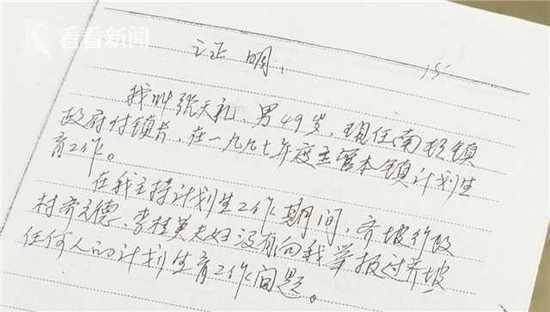 看看新闻
证明
15
我叫张天礼、男49岁,现任南顿镇
政府付镇长,在一九九七年度主管本镇计划生
育工作。
在我主持计划生工作期间,齐坡行政
村齐元德、李桂英夫妇没有向我举报过齐坡
任何人的计划生育工作问题。